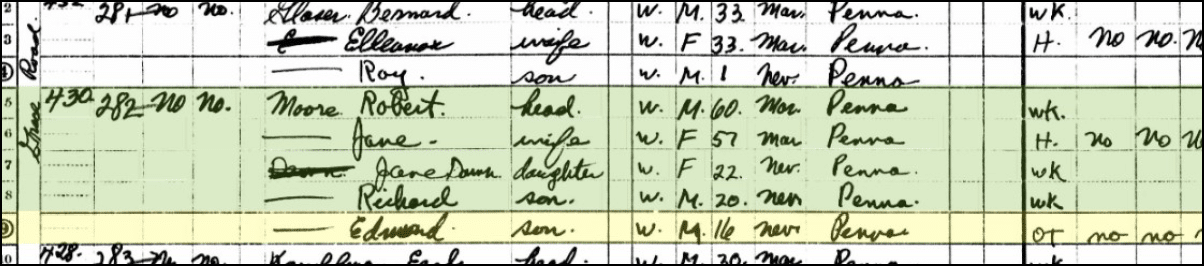 2 281 no no. Glaser. Bernard. head. W. M. 33. Mar. Penna. wk.
3 — Elleanor wife W. F 33. Mar. Penna. H. no no. N
Road — Roy. son W. M. 1 Nev. Penna
5 430 282 no no. Moore Robert. head. W. M. 60. Mar. Penna wk.
6 — Jane. wife W. F 57 Mar Penna H. no no N
7 Jane Dawn daughter W F 22. Nev. Penna. wk
8 — Richard son. W. M. 20. Nev Penna. wk
— Edmund. son. W. M. 16 Nev. Penna OT no no
428. 283 no no. head. W. M. 30. Mar. Penna. wk